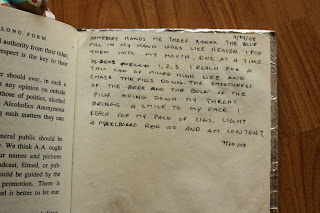 LONG FORM
d authority from their rider,
respect is the key to their
r should ever, in such a
s any opinion on outside
those of politics, alcohol
Alcoholics Anonymous
g such matters they can
neral public should be
y. We think A.A. ought
ur names and pictures
adcast, filmed, or pub-
ould be guided by the
promotion. There is
eel it better to let our
SOMEBODY HANDS ME THREE XANAX. THE BLUE
PILL IN MY HAND LOOKS LIKE HEAVEN. I POP
THEM INTO MY MOUTH, ONE AT A TIME
1, 2, 3. I REACH FOR A
TALL CAN OF MILLER HIGH LIFE AND
CHASE THE PILLS DOWN. THE SMOOTHNESS
OF THE BEER AND THE BULK OF THE
PILLS GOING DOWN MY THROAT
BRINGS A SMILE TO MY FACE. I
REACH FOR MY PACK OF CIGS, LIGHT
A MARLBORO RED 100 AND AM CONTENT.
9/20/08